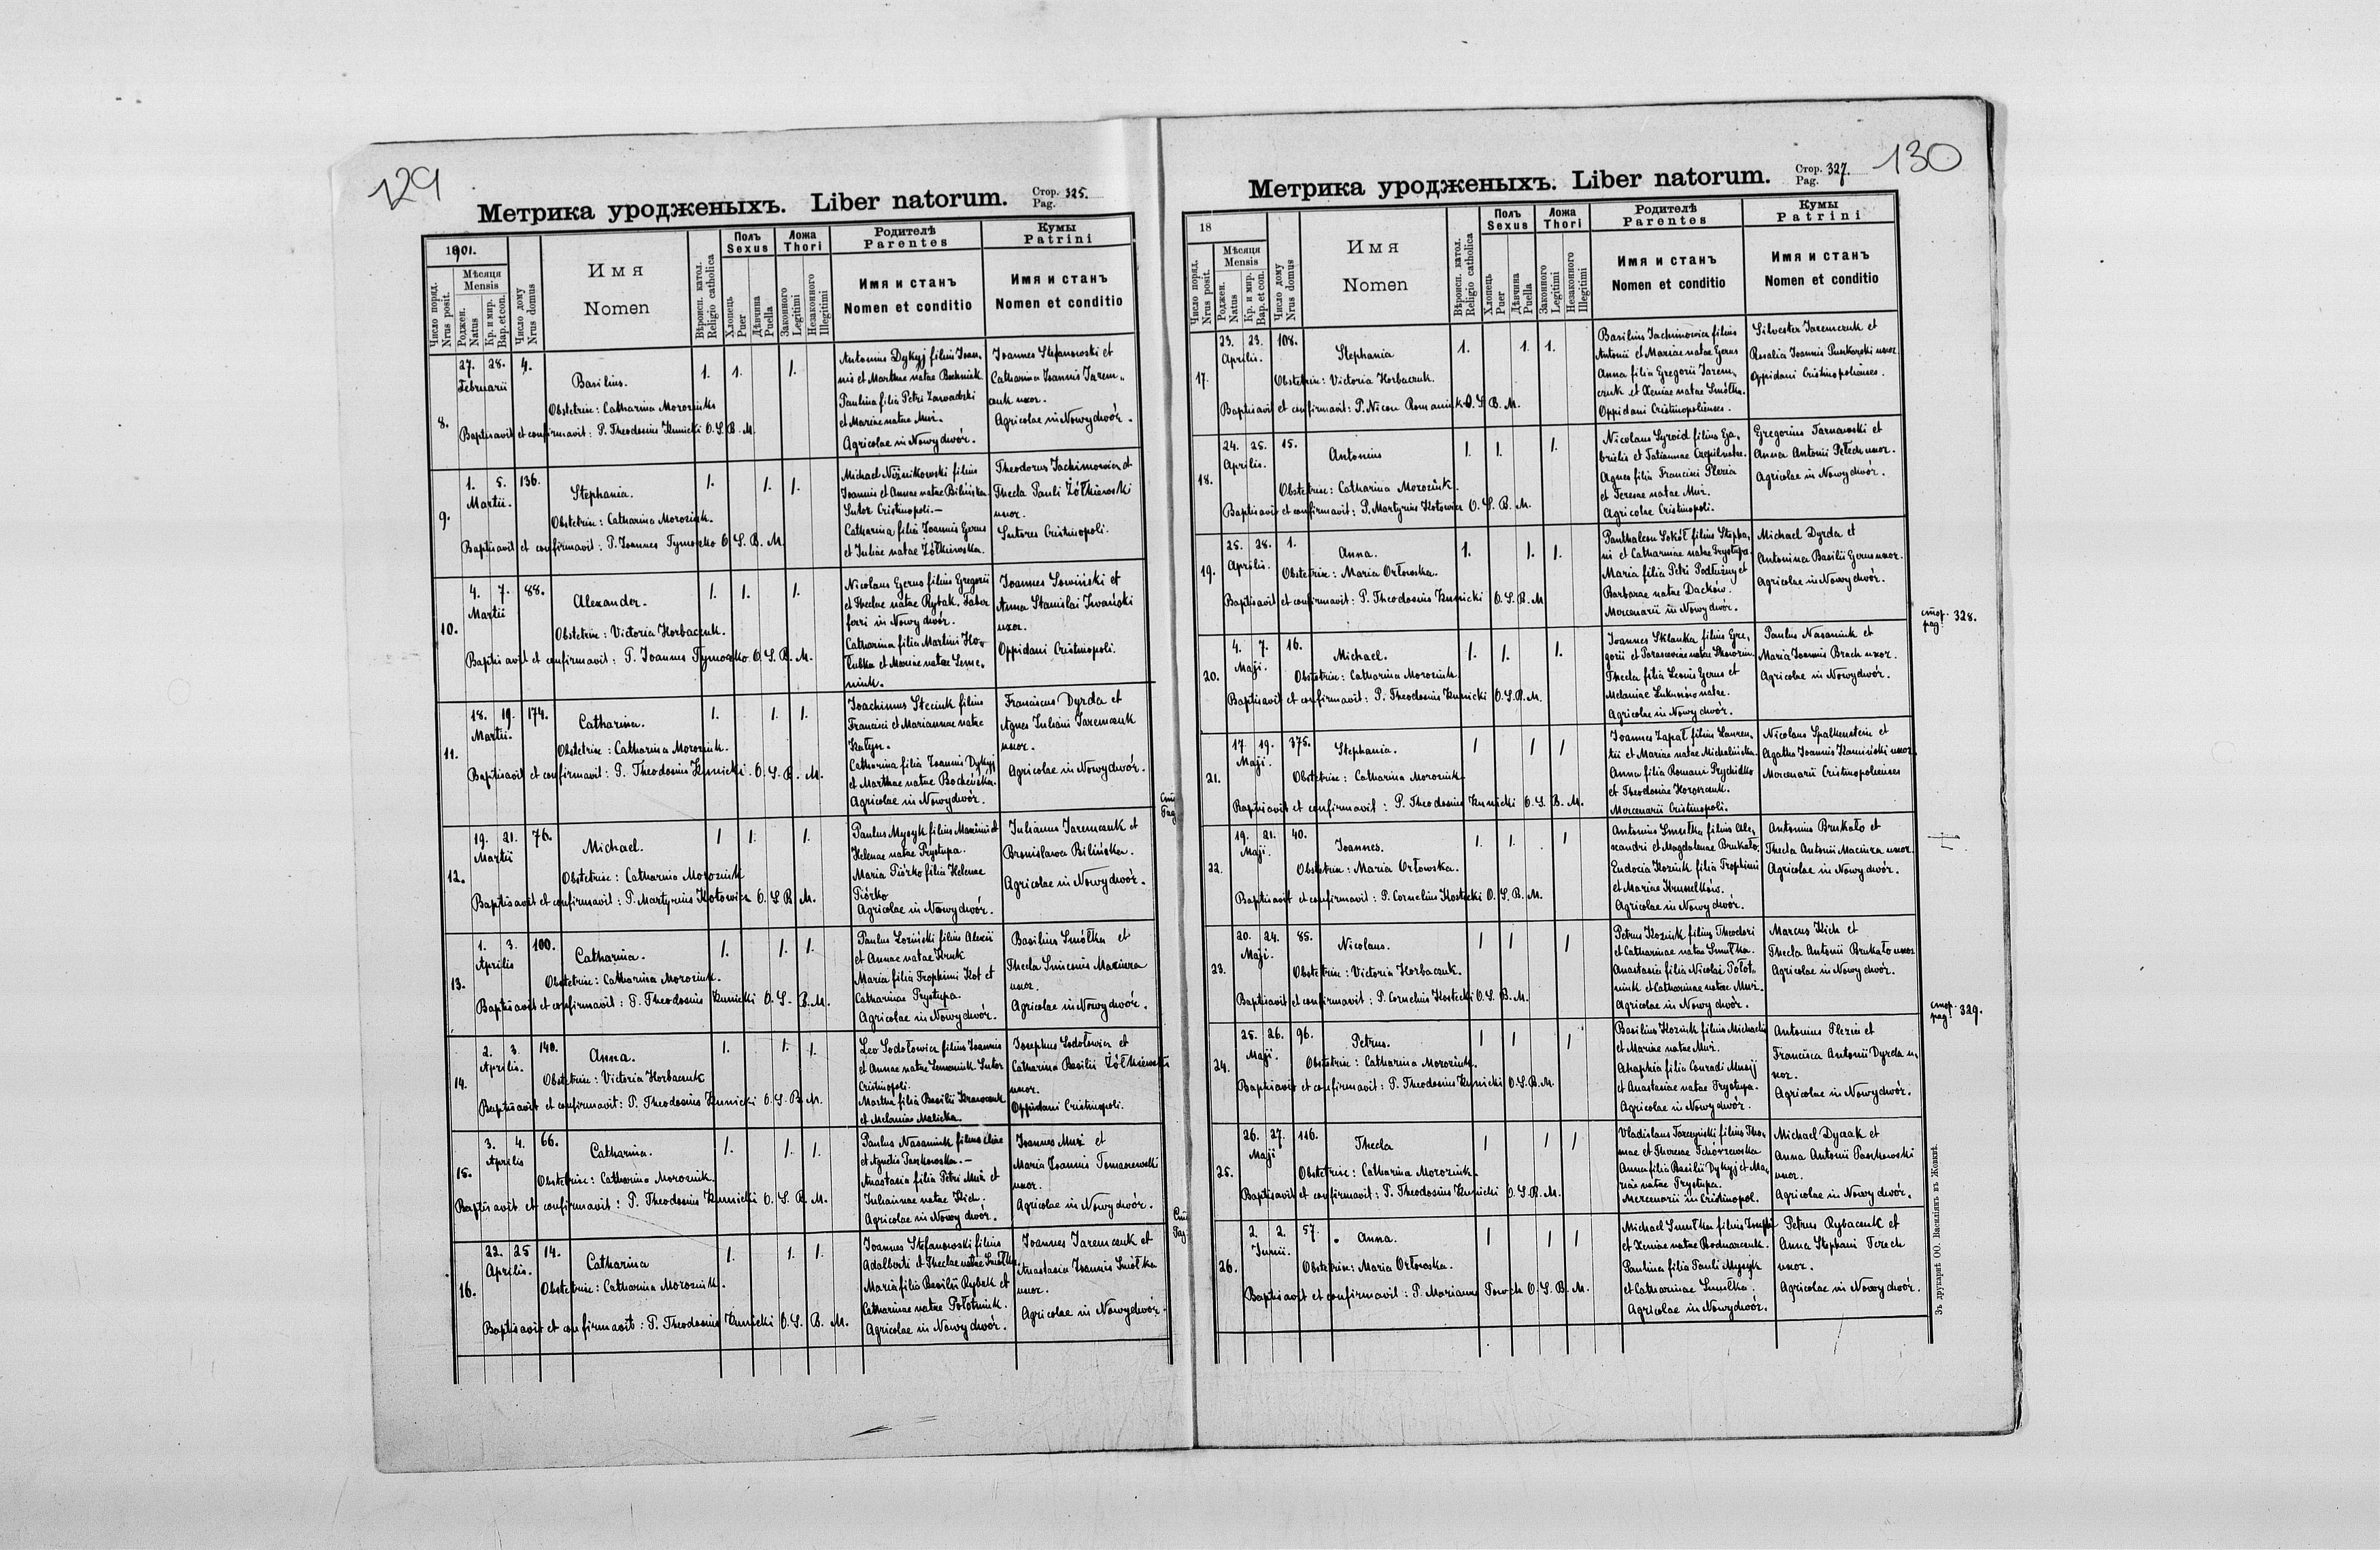 129
Метрика уродженыхъ. Liber natorum.
Стор. Pag. 325.
1901.
Число поряд. Nrus posit.
Мѣсяця Mensis
Роджен. Natus
Кр. и мир. Bap. et con.
Число дому Nrus domus
Имя Nomen
Вѣроисп. катол. Religio catholica
Полъ Sexus
Хлопець Puer
Дѣвчина Puella
Ложа Thori
Законного Legitimi
Незаконного Illegitimi
Родителѣ Parentes
Имя и станъ Nomen et conditio
Кумы Patrini
Имя и станъ Nomen et conditio
8. 27. 28. Februarii 4. Basilius. 1. 1. 1.
Obstetrix: Catharina Morozink
Baptisavit et confirmavit: P. Theodosius Kunicki O. S. B. M.
Antonius Dykyj filius Joan,
nis et Marthae natae
Paulina filia Petri Zawadzki
et Mariae natae Mur.
Agricolae in Nowydwór.
Joannes Stefanowski et
Catharina Joannis Jarem,,
czuk uxor.
Agricolae in Nowydwór.
9. 1. 5. Martii. 136. Stephania. 1. 1. 1.
Obstetrix: Catharina Morozink.
Baptisavit et confirmavit: P. Joannes Tymoczko O. S. B. M.
Michael Niżnikowski filius
Joannis et Annae natae Bilińska.
Sutor Cristinopoli.—
Catharina filia Joannis Gerus
et Juliae natae Żółkiewska.
Theodorus Jachimowicz et
Thecla Pauli Żółkiewski
uxor.
Sutores Cristinopoli.
10. 4. 7. Martii 88. Alexander. 1. 1. 1.
Obstetrix: Victoria Horbaczuk.
Baptisavit et confirmavit: P. Joannes Tymoczko. O. S. B. M.
Nicolaus Gerus filius Gregorii
et Theclae natae Rybak. Faber
ferri in Nowydwór.
Catharina filia Martini Ho,
łubka et Mariae natae Seme,
niuk.
Joannes Sowiński et
Anna Stanislai Iwański
uxor.
Oppidani Cristinopoli.
11. 18. 19. Martii. 174. Catharina. 1. 1. 1.
Obstetrix: Catharina Morozink.
Baptisavit et confirmavit: P. Theodosius Kunicki. O. S. B. M.
Joachimus Steciuk filius
Francisci et Mariannae natae
Catharina filia Joannis Dykyj
et Marthae natae Bocheńska.
Agricolae in Nowydwór.
Franciscus Dyrda et
Agnes Juliani Jaremczuk
uxor.
Agricolae in Nowydwór.
12. 19. 21. Martii 76. Michael. 1 1. 1.
Obstetrix: Catharina Morozink
Baptisavit et confirmavit: P. Martyrius Kotowicz O. S. B. M.
Paulus Mysyk filius Maximi et
Helenae natae Prystupa.
Maria Piórko filia Helenae
Piórko
Agricolae in Nowydwór.
Julianus Jaremczuk et
Bronislawa Bilińska.
Agricolae in Nowydwór.
13. 1. 3. Aprilis 100. Catharina. 1. 1. 1.
Obstetrix: Catharina Morozink.
Baptisavit et confirmavit: P. Theodosius Kunicki O. S. B. M.
Paulus Loziński filius Alexii
et Annae natae Kruk
Maria filia Trophimi Kot et
Catharinae Prystupa.
Agricolae in Nowydwór.
Basilius Smółka et
Thecla Maciura
uxor.
Agricolae in Nowydwór.
14. 2. 3. Aprilis. 140. Anna. 1. 1. 1.
Obstetrix: Victoria Horbaczuk
Baptisavit et confirmavit: P. Theodosius Kunicki O. S. B. M.
Leo Sodołowicz filius Joannis
et Annae natae Semeniuk Sutor
Cristinopoli.
Martha filia Basilii Krawczuk
et Melaniae Malicka.
Josephus Sodołowicz et
Catharina Basilii Żółkiewski
uxor.
Oppidani Cristinopoli.
15. 3. 4. Aprilis 66. Catharina. 1. 1. 1.
Obstetrix: Catharina Morozink.
Baptisavit et confirmavit: P. Theodosius Kunicki O. S. B. M.
Paulus Nazaniuk filius Eliae
et Agnetis Paszkowska.—
Anastasia filia Petri Mur et
Juliannae natae Kich.
Agricolae in Nowydwór.
Joannes Mur et
Maria Joannis Tomaszewski
uxor.
Agricolae in Nowydwór.
16. 22. 25 Aprilis. 14. Catharina 1. 1. 1.
Obstetrix: Catharina Morozink.
Baptisavit et confirmavit: P. Theodosius Kunicki O. S. B. M.
Joannes Stefanowski filius
Adalberti et Theclae natae Smółka.
Maria filia Basilii Rybak et
Catharinae natae Połotniuk.
Agricolae in Nowydwór.
Joannes Jaremczuk et
Anastasia Joannis Smółka
uxor.
Agricolae in Nowydwór.
130
Метрика уродженыхъ. Liber natorum.
Стор. Pag. 327.
18
Число поряд. Nrus posit.
Мѣсяця Mensis
Роджен. Natus
Кр. и мир. Bap. et con.
Число дому Nrus domus
Имя Nomen
Вѣроисп. катол. Religio catholica
Полъ Sexus
Хлопець Puer
Дѣвчина Puella
Ложа Thori
Законного Legitimi
Незаконного Illegitimi
Родителѣ Parentes
Имя и станъ Nomen et conditio
Кумы Patrini
Имя и станъ Nomen et conditio
17. 23. 23. Aprilis. 108. Stephania 1. 1. 1.
Obstetrix: Victoria Horbaczuk.
Baptisavit et confirmavit: P. Nicon Romaniuk O. S. B. M.
Basilius Jachimowicz filius
Antonii et Mariae natae Gerus
Anna filia Gregorii Jarem,
czuk et Xeniae natae Smółka.
Oppidani Cristinopolienses.
Silvester Jaremczuk et
Rosalia Joannis Puszkarski uxor.
Oppidani Cristinopolienses.
18. 24. 25. Aprilis. 15. Antonius 1. 1. 1.
Obstetrix: Catharina Morozink.
Baptisavit et confirmavit: P. Martyrius Kotowicz O. S. B. M.
Nicolaus Syroid filius Ga,
brielis et Tatiannae Czepil natae.
Agnes filia Francisci Plezia
et Teresae natae Mur.
Agricolae Cristinopoli.
Gregorius Tarnawski et
Anna Antonii Pełech uxor.
Agricolae in Nowydwór.
19. 25. 28. Aprilis. 1. Anna. 1. 1. 1.
Obstetrix: Maria Orłowska.
Baptisavit et confirmavit: P. Theodosius Kunicki O. S. B. M
Panthaleon Sokół filius Stepha,
ni et Catharinae natae Prystupa.
Maria filia Petri Podłużny et
Barbarae natae Dacków.
Mercenarii in Nowydwór.
Michael Dyrda et
Antonina Basilii Gerus uxor.
Agricolae in Nowydwór.
стор. pag. 328.
20. 4. 7. Maji. 16. Michael. 1. 1. 1.
Obstetrix: Catharina Morozink.
Baptisavit et confirmavit: P. Theodosius Kunicki O. S. B. M.
Joannes Sklanka filius Gre,
gorii et Parasceviae natae
Thecla filia Leonis Gerus et
Melaniae natae.
Agricolae in Nowydwór.
Paulus Nazaniuk et
Maria Joannis Brach uxor.
Agricolae in Nowydwór.
21. 17. 19. Maji. 375. Stephania. 1 1 1
Obstetrix: Catharina Morozink.
Baptisavit et confirmavit: P. Theodosius Kunicki O. S. B. M.
Joannes Zapał filius Lauren,
tii et Mariae natae Michalińska.
Anna filia Romani Prychidko
et Theodosiae Horoszczuk.
Mercenarii Cristinopoli.
Nicolaus Spalkenstein et
Agatha Joannis Kamiński uxor.
Mercenarii Cristinopolienses
22. 19. 21. Maji. 40. Joannes. 1. 1. 1
Obstetrix: Maria Orłowska.
Baptisavit et confirmavit: P. Cornelius Kostecki O. S. B. M.
Antonius Smułka filius Ale,
xandri et Magdalenae Brukało.
Eudocia Koziuk filia Trophimi
et Mariae Krusielków.
Agricolae in Nowydwór.
Antonius Brukało et
Thecla Antonii Maciura uxor.
Agricolae in Nowydwór.
23. 20. 24. Maji. 85. Nicolaus. 1 1 1
Obstetrix: Victoria Horbaczuk.
Baptisavit et confirmavit: P. Cornelius Kostecki O. S. B. M.
Petrus Koziuk filius Theodori
et Catharinae natae Smułka.
Anastasia filia Nicolai Połot,,
niuk et Catharinae natae Mur.
Agricolae in Nowydwór.
Marcus Kich et
Thecla Antonii Brukało uxor
Agricolae in Nowydwór.
стор. pag. 329.
24. 25. 26. Maji. 96. Petrus. 1 1 1
Obstetrix: Catharina Morozink.
Baptisavit et confirmavit: P. Theodosius Kunicki O. S. B. M.
Basilius Koziuk filius Michaelis
et Mariae natae Mur.
Ahaphia filia Conradi Musij
et Anastasiae natae Prystupa.
Agricolae in Nowydwór.
Antonius Plezia et
Francisca Antonii Dyrda u,
xor.
Agricolae in Nowydwór.
25. 26. 27. Maji 116. Thecla 1 1 1
Obstetrix: Catharina Morozink.
Baptisavit et confirmavit: P. Theodosius Kunicki O. S. B. M.
Vladislaus Tarczyński filius Tho,
mae et Theresae Tchórzewska
Anna filia Basilii Dykyj et Ma,
riae natae Prystupa.
Mercenarii in Cristinopol.
Michael Dyczak et
Anna Antonii Paszkowski
uxor.
Agricolae in Nowydwór.
26. 2. 2. Junii. 57. Anna. 1 1 1
Obstetrix: Maria Orłowska.
Baptisavit et confirmavit: P. Marianus Powch O. S. B. M.
Michael Smułka filius Josephi
et Xeniae natae Bodnarczuk.
Paulina filia Pauli Mysyk
et Catharinae Smułka.
Agricolae in Nowydwór.
Petrus Rybaczuk et
Anna Stephani Terech
uxor.
Agricolae in Nowydwór.
Зъ друкарнѣ ОО. Василіянъ въ Жовквѣ.